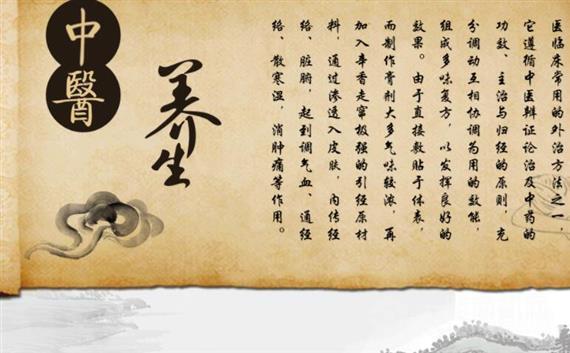 中醫
养生
医临床常用的外治方法之一，
它遵循中医辨证论治及中药的
功效、主治与归经的原则，充
分调动互相协调为用的效能，
组成多味复方，以发挥良好的
效果。由于直接敷贴于体表，
而制作膏剂大多气味较浓，再
加入辛香走窜极强的引经原材
料，通过渗透入皮肤，内传经
络、脏腑，起到调气血、通经
络、散寒湿，消肿痛等作用。